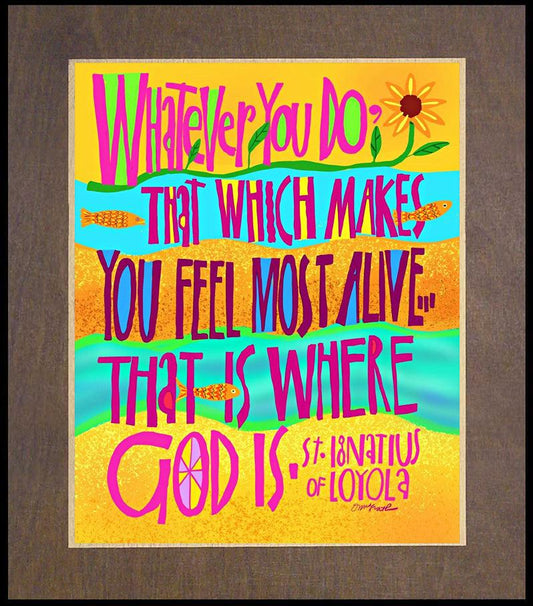 WHATEVER YOU DO,
THAT WHICH MAKES
YOU FEEL MOST ALIVE...
THAT IS WHERE
GOD IS.
St. IGNATIUS
OF LOYOLA